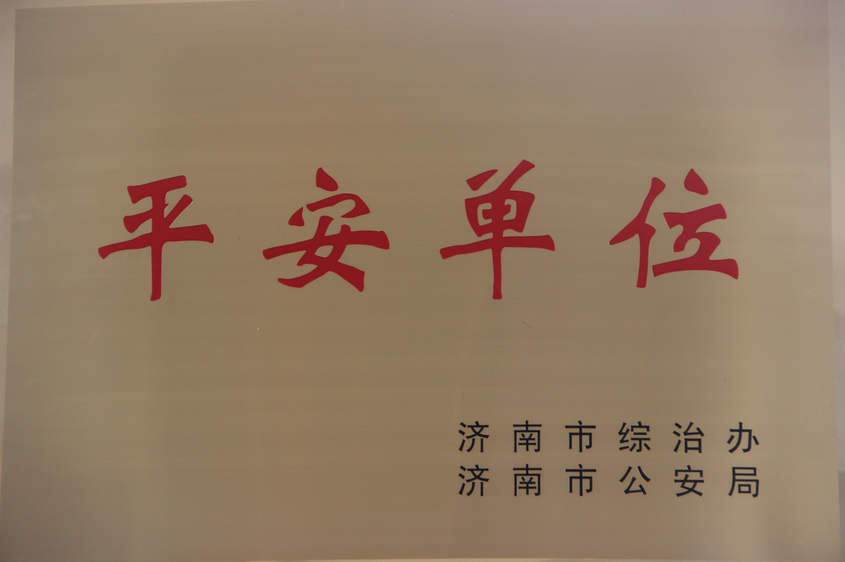 平安单位
济南市综治办
济南市公安局